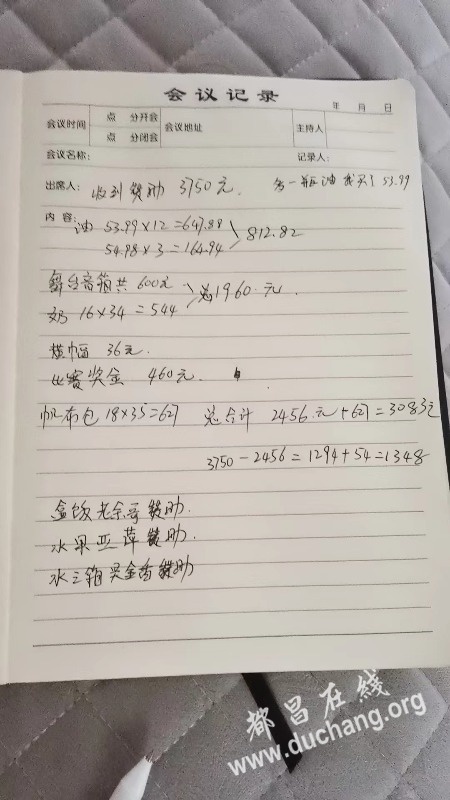 会议记录
年 月 日
会议时间 点 分开会 会议地址 主持人
点 分闭会
会议名称： 记录人：
出席人： 收到赞助 3750元. 多一瓶油 我买了53.99
内 容： 油 53.99×12=647.89
54.98×3=164.94 812.82
舞台音箱共 600元
奶 16×34=544 总1960.元.
横幅 36元.
比赛奖金 460元.
帆布包 18×35=627 总合计 2456.元+627=3083元
3750-2456=1294+54=1348
盒饭老余哥赞助.
水果亚萍赞助.
水三箱 赞助
都昌在线
www.duchang.org